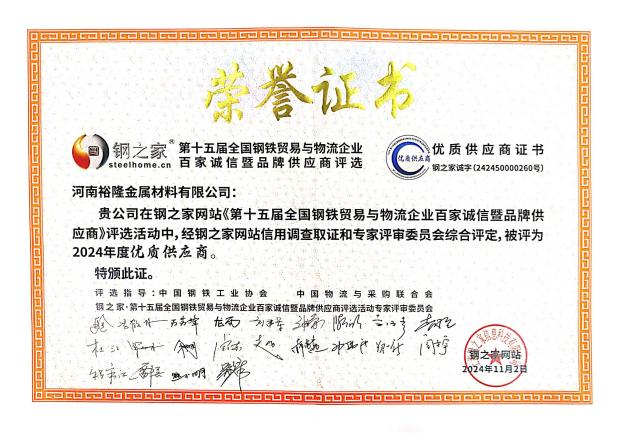 荣誉证书
钢之家®
steelhome.cn
第十五届全国钢铁贸易与物流企业
百家诚信暨品牌供应商评选
优质供应商
优质供应商证书
钢之家诚字(242450000260号)
河南裕隆金属材料有限公司：
贵公司在钢之家网站《第十五届全国钢铁贸易与物流企业百家诚信暨品牌供
应商》评选活动中，经钢之家网站信用调查取证和专家评审委员会综合评定，被评为
2024年度优质供应商。
特颁此证。
评选指导：中国钢铁工业协会 中国物流与采购联合会
钢之家·第十五届全国钢铁贸易与物流企业百家诚信暨品牌供应商评选专家评审委员会
钢之家网站
2024年11月2日